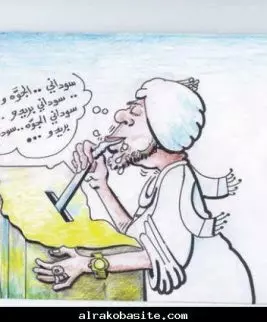 سوداني .. الجوّه و
.. سوداني بريدو ..
سوداني الجوّه .. سود
بريدو ...
alrakobasite.com